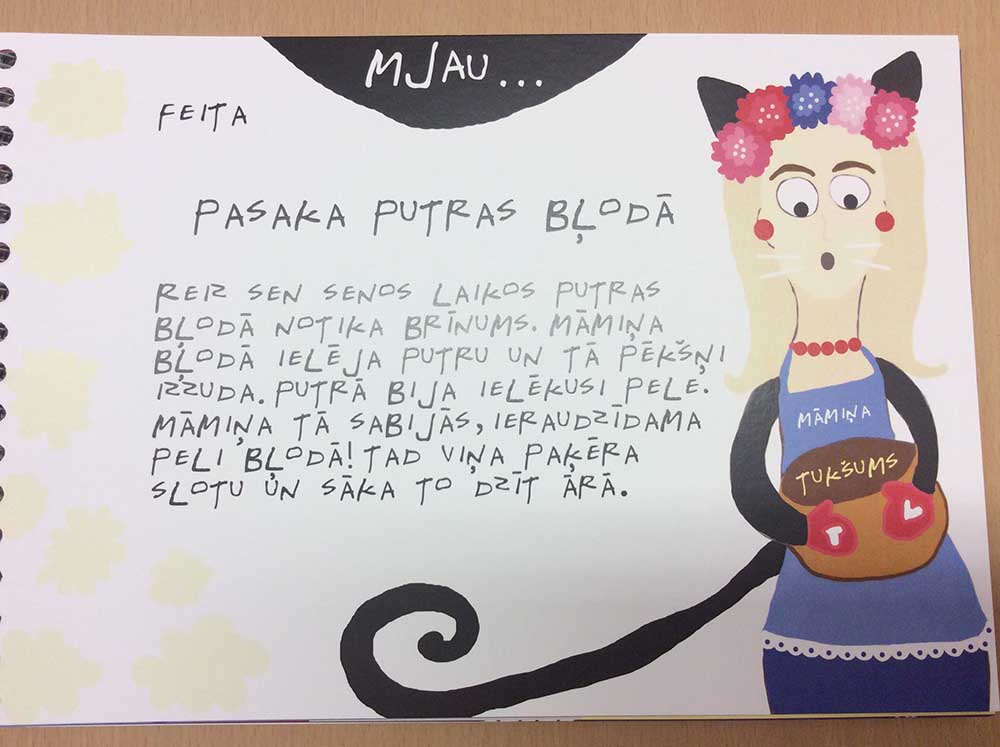 MJAU...
FEITA
PASAKA PUTRAS BĻODĀ
REIZ SEN SENOS LAIKOS PUTRAS
BĻODĀ NOTIKA BRĪNUMS. MĀMIŅA
BĻODĀ IELĒJA PUTRU UN TĀ PĒKŠŅI
IZZUDA. PUTRĀ BIJA IELĒKUSI PELE.
MĀMIŅA TĀ SABIJĀS, IERAUDZĪDAMA
PELI BĻODĀ! TAD VIŅA PAĶĒRA
SLOTU UN SĀKA TO DZĪT ĀRĀ.
MĀMIŅA
TUKŠUMS
T L